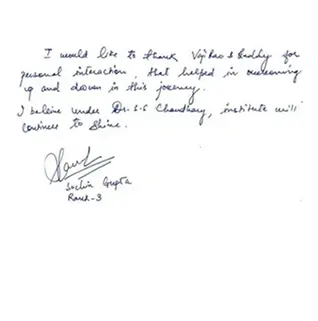 I would like to thank Vaji Rao & Reddy for
personal interaction, that helped in overcoming
up and down in this journey.
I believe under Dr. S.S Chaudhary, institute will
continue to Shine.
Sachin Gupta
Rank-3